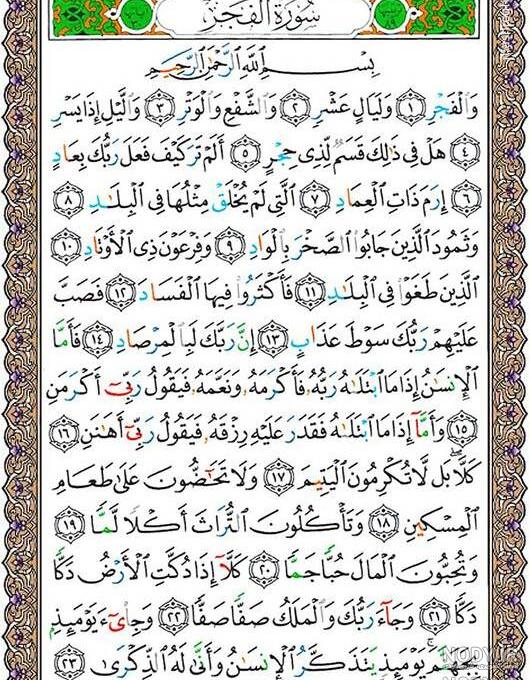 سُورَةُ الفَجْرِ
بِسْمِ اللَّهِ الرَّحْمَٰنِ الرَّحِيمِ
وَالْفَجْرِ ﴿١﴾ وَلَيَالٍ عَشْرٍ ﴿٢﴾ وَالشَّفْعِ وَالْوَتْرِ ﴿٣﴾ وَالَّيْلِ إِذَا يَسْرِ
﴿٤﴾ هَلْ فِي ذَٰلِكَ قَسَمٌ لِّذِي حِجْرٍ ﴿٥﴾ أَلَمْ تَرَ كَيْفَ فَعَلَ رَبُّكَ بِعَادٍ
﴿٦﴾ إِرَمَ ذَاتِ الْعِمَادِ ﴿٧﴾ الَّتِي لَمْ يُخْلَقْ مِثْلُهَا فِي الْبِلَٰدِ ﴿٨﴾
وَثَمُودَ الَّذِينَ جَابُوا الصَّخْرَ بِالْوَادِ ﴿٩﴾ وَفِرْعَوْنَ ذِي الْأَوْتَادِ ﴿١٠﴾
الَّذِينَ طَغَوْا فِي الْبِلَٰدِ ﴿١١﴾ فَأَكْثَرُوا فِيهَا الْفَسَادَ ﴿١٢﴾ فَصَبَّ
عَلَيْهِمْ رَبُّكَ سَوْطَ عَذَابٍ ﴿١٣﴾ إِنَّ رَبَّكَ لَبِالْمِرْصَادِ ﴿١٤﴾ فَأَمَّا
الْإِنسَٰنُ إِذَا مَا ابْتَلَىٰهُ رَبُّهُ فَأَكْرَمَهُ وَنَعَّمَهُ فَيَقُولُ رَبِّي أَكْرَمَنِ
﴿١٥﴾ وَأَمَّا إِذَا مَا ابْتَلَىٰهُ فَقَدَرَ عَلَيْهِ رِزْقَهُ فَيَقُولُ رَبِّي أَهَٰنَنِ ﴿١٦﴾
كَلَّا بَل لَّا تُكْرِمُونَ الْيَتِيمَ ﴿١٧﴾ وَلَا تَحَٰضُّونَ عَلَىٰ طَعَامِ
الْمِسْكِينِ ﴿١٨﴾ وَتَأْكُلُونَ التُّرَاثَ أَكْلًا لَّمًّا ﴿١٩﴾
وَتُحِبُّونَ الْمَالَ حُبًّا جَمًّا ﴿٢٠﴾ كَلَّا إِذَا دُكَّتِ الْأَرْضُ دَكًّا
دَكًّا ﴿٢١﴾ وَجَاءَ رَبُّكَ وَالْمَلَكُ صَفًّا صَفًّا ﴿٢٢﴾ وَجِايءَ يَوْمَئِذٍ
بِجَهَنَّمَ يَوْمَئِذٍ يَتَذَكَّرُ الْإِنسَٰنُ وَأَنَّىٰ لَهُ الذِّكْرَىٰ ﴿٢٣﴾